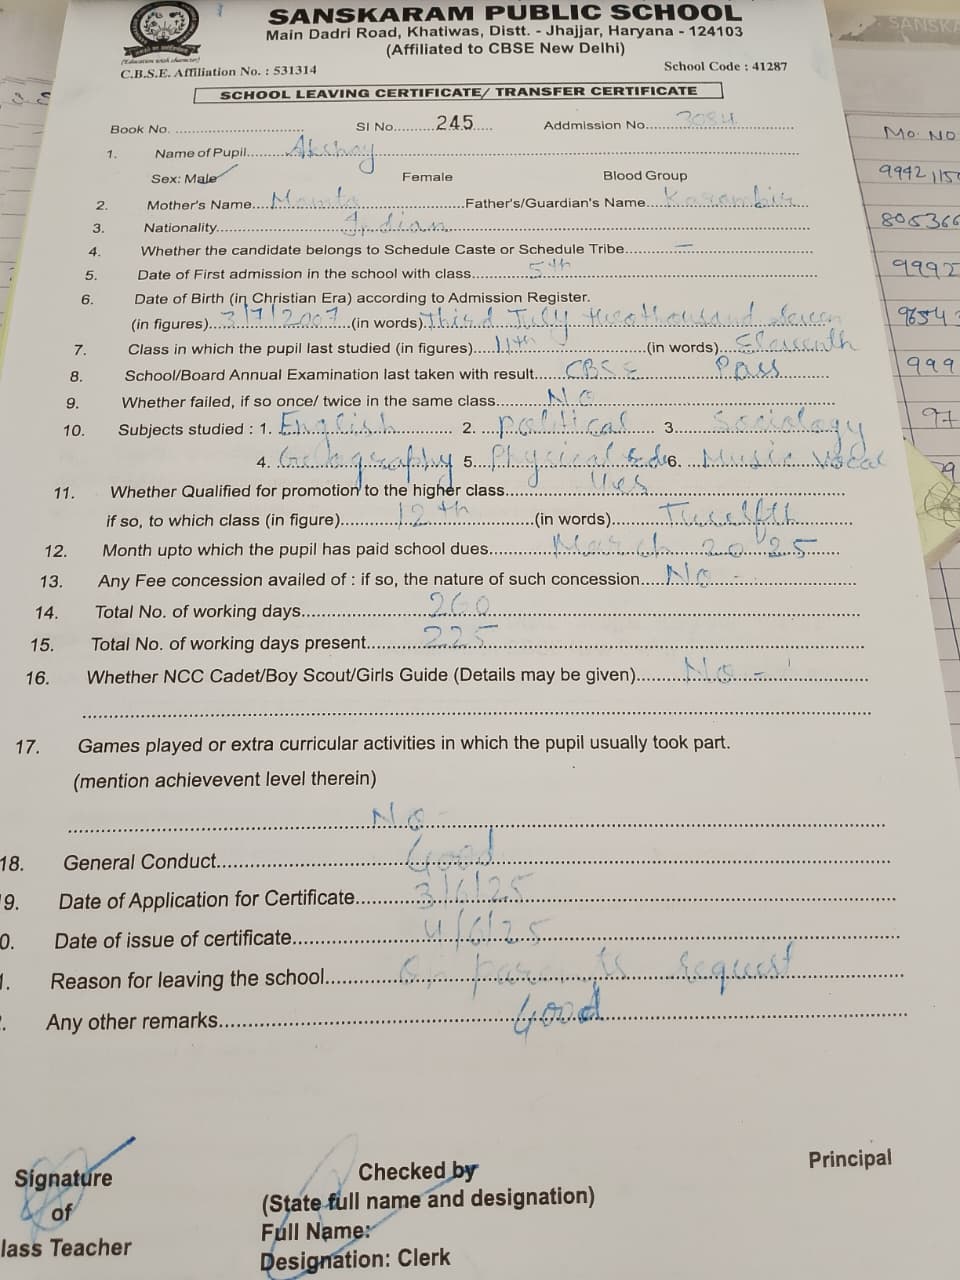 SANSKARAM PUBLIC SCHOOL
Main Dadri Road, Khatiwas, Distt. - Jhajjar, Haryana - 124103
(Affiliated to CBSE New Delhi)
(Education with character)
C.B.S.E. Affiliation No. : 531314 School Code : 41287
SCHOOL LEAVING CERTIFICATE/ TRANSFER CERTIFICATE
Book No. Sl No. 245 Addmission No. 3084
1. Name of Pupil Akshay
Sex: Male Female Blood Group
2. Mother's Name Mamta Father's/Guardian's Name Karambir
3. Nationality Indian
4. Whether the candidate belongs to Schedule Caste or Schedule Tribe —
5. Date of First admission in the school with class 5th
6. Date of Birth (in Christian Era) according to Admission Register.
(in figures) 3/7/2007 (in words) Third July twothousand seven
7. Class in which the pupil last studied (in figures) 11th (in words) Eleventh
8. School/Board Annual Examination last taken with result CBSE Pass
9. Whether failed, if so once/ twice in the same class NO
10. Subjects studied : 1. English 2. political 3. Sociology
4. Geography 5. Physical edu 6. Music Vocal
11. Whether Qualified for promotion to the higher class Yes
if so, to which class (in figure) 12th (in words) Twelfth
12. Month upto which the pupil has paid school dues March 2025
13. Any Fee concession availed of : if so, the nature of such concession No -
14. Total No. of working days 260
15. Total No. of working days present 225
16. Whether NCC Cadet/Boy Scout/Girls Guide (Details may be given) No -
17. Games played or extra curricular activities in which the pupil usually took part.
(mention achievevent level therein)
No -
18. General Conduct Good
9. Date of Application for Certificate 3/6/25
0. Date of issue of certificate 4/6/25
1. Reason for leaving the school On parents request
Any other remarks Good
Signature
of
lass Teacher
Checked by
(State full name and designation)
Full Name:
Designation: Clerk
Principal
SANSKA
Mo. NO
9992
999
97